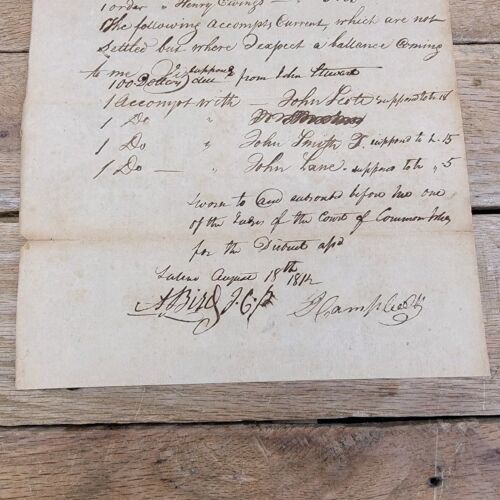 1 order " Henry Ewings —
The following Accompts Current, which are not
Settled but where I expect a ballance Coming
to me
100 Dollars suppose due from John Stewart
1 Accompt with John Scote suppose to be 18
1 Do "
1 Do " John Smith T. suppose to be 15
1 Do — " John Lane - suppose to be " 5
sworn to and subscribd before me one
of the Judges of the Court of Common Pleas
for the District afsd
Salem August 18th 1812
A Bird J.C.P. Campbell